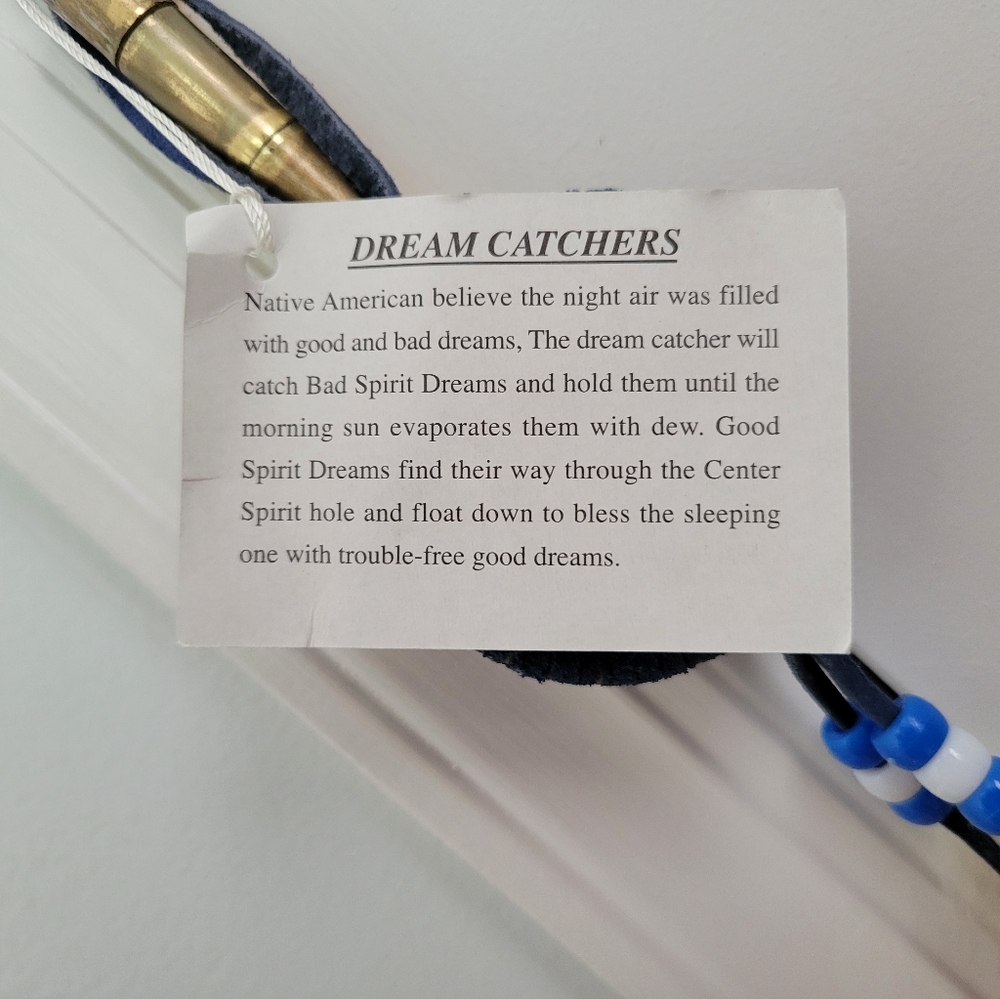 DREAM CATCHERS
Native American believe the night air was filled
with good and bad dreams, The dream catcher will
catch Bad Spirit Dreams and hold them until the
morning sun evaporates them with dew. Good
Spirit Dreams find their way through the Center
Spirit hole and float down to bless the sleeping
one with trouble-free good dreams.